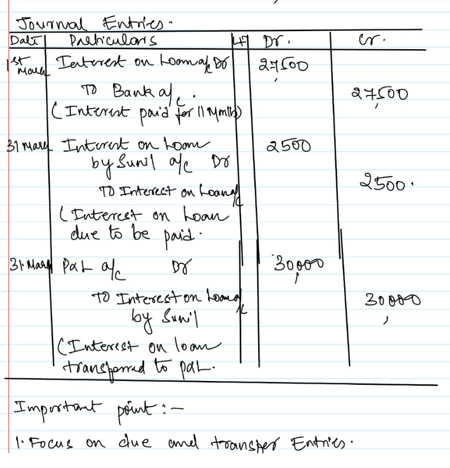 Journal Entries.
Date Particulars LF Dr. Cr.
1st March Interest on Loan a/c Dr 27,500
To Bank a/c. 27,500
(Interest paid for 11 Mnths)
31 Mar Interest on Loan 2500
by Sunil a/c Dr
To Interest on Loan a/c 2500.
(Interest on Loan
due to be paid.
31 Mar P&L a/c Dr 30,000
To Interest on Loan a/c 30,000
by Sunil
(Interest on loan
transferred to P&L.
Important point :-
1. Focus on due and transfer Entries.